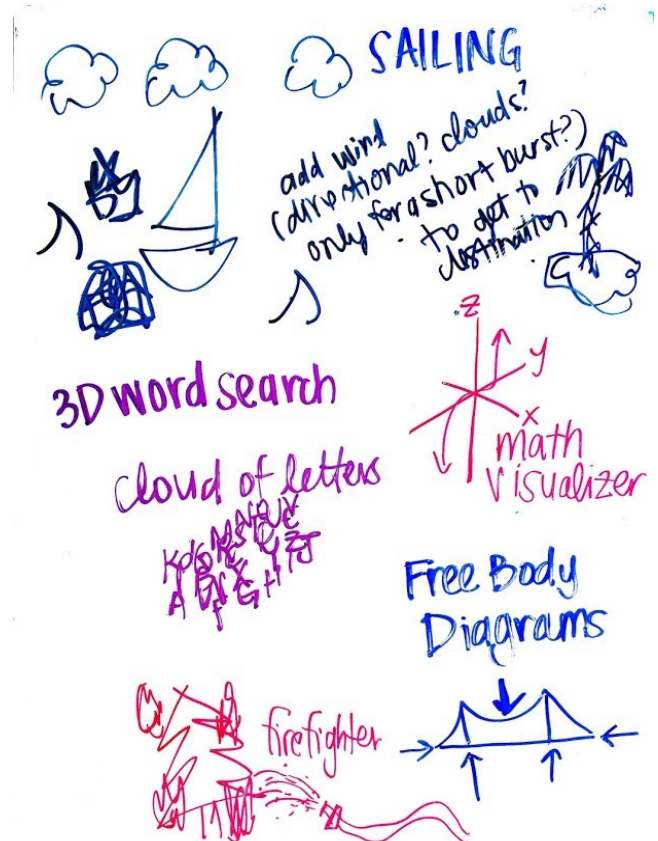 SAILING
add wind
(directional? clouds?
only for a short burst?)
to get to
destination
z
y
x
math
visualizer
3D word search
cloud of letters
Free Body
Diagrams
firefighter